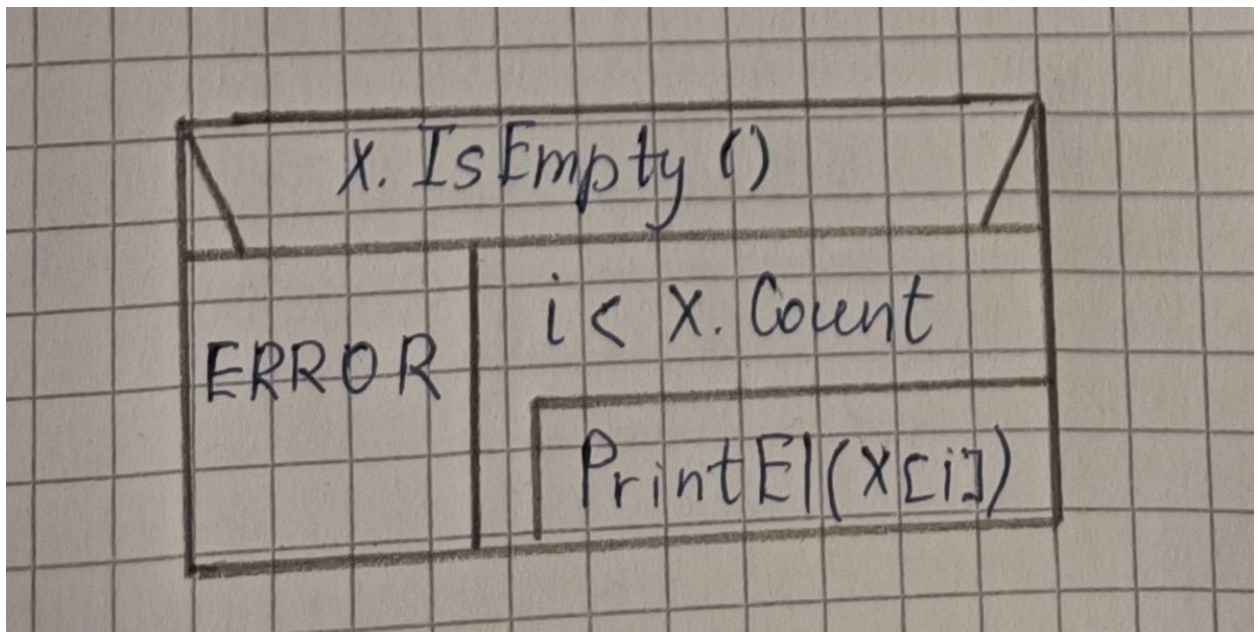 X. IsEmpty ()
ERROR
i < X. Count
PrintEl(X[i])